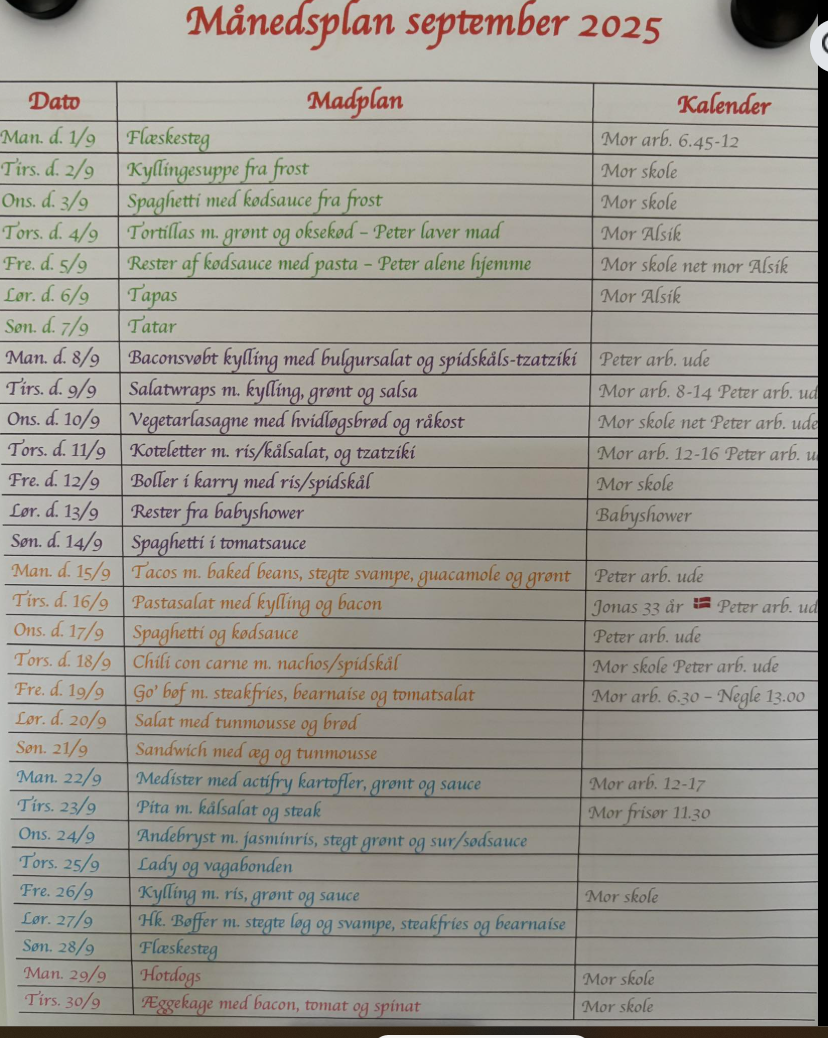 Månedsplan september 2025
Dato Madplan Kalender
Man. d. 1/9 Flæskesteg Mor arb. 6.45-12
Tirs. d. 2/9 Kyllingesuppe fra frost Mor skole
Ons. d. 3/9 Spaghetti med kødsauce fra frost Mor skole
Tors. d. 4/9 Tortillas m. grønt og oksekød – Peter laver mad Mor Alsik
Fre. d. 5/9 Rester af kødsauce med pasta – Peter alene hjemme Mor skole net mor Alsik
Lør. d. 6/9 Tapas Mor Alsik
Søn. d. 7/9 Tatar
Man. d. 8/9 Baconsvøbt kylling med bulgursalat og spidskåls-tzatziki Peter arb. ude
Tirs. d. 9/9 Salatwraps m. kylling, grønt og salsa Mor arb. 8-14 Peter arb. ud
Ons. d. 10/9 Vegetarlasagne med hvidløgsbrød og råkost Mor skole net Peter arb. ude
Tors. d. 11/9 Koteletter m. ris/kålsalat, og tzatziki Mor arb. 12-16 Peter arb. u
Fre. d. 12/9 Boller i karry med ris/spidskål Mor skole
Lør. d. 13/9 Rester fra babyshower Babyshower
Søn. d. 14/9 Spaghetti i tomatsauce
Man. d. 15/9 Tacos m. baked beans, stegte svampe, guacamole og grønt Peter arb. ude
Tirs. d. 16/9 Pastasalat med kylling og bacon Jonas 33 år 🇩🇰 Peter arb. ud
Ons. d. 17/9 Spaghetti og kødsauce Peter arb. ude
Tors. d. 18/9 Chili con carne m. nachos/spidskål Mor skole Peter arb. ude
Fre. d. 19/9 Go' bøf m. steakfries, bearnaise og tomatsalat Mor arb. 6.30 – Negle 13.00
Lør. d. 20/9 Salat med tunmousse og brød
Søn. 21/9 Sandwich med æg og tunmousse
Man. 22/9 Medister med actifry kartofler, grønt og sauce Mor arb. 12-17
Tirs. 23/9 Pita m. kålsalat og steak Mor frisør 11.30
Ons. 24/9 Andebryst m. jasminris, stegt grønt og sur/sødsauce
Tors. 25/9 Lady og vagabonden
Fre. 26/9 Kylling m. ris, grønt og sauce Mor skole
Lør. 27/9 Hk. Bøffer m. stegte løg og svampe, steakfries og bearnaise
Søn. 28/9 Flæskesteg
Man. 29/9 Hotdogs Mor skole
Tirs. 30/9 Æggekage med bacon, tomat og spinat Mor skole